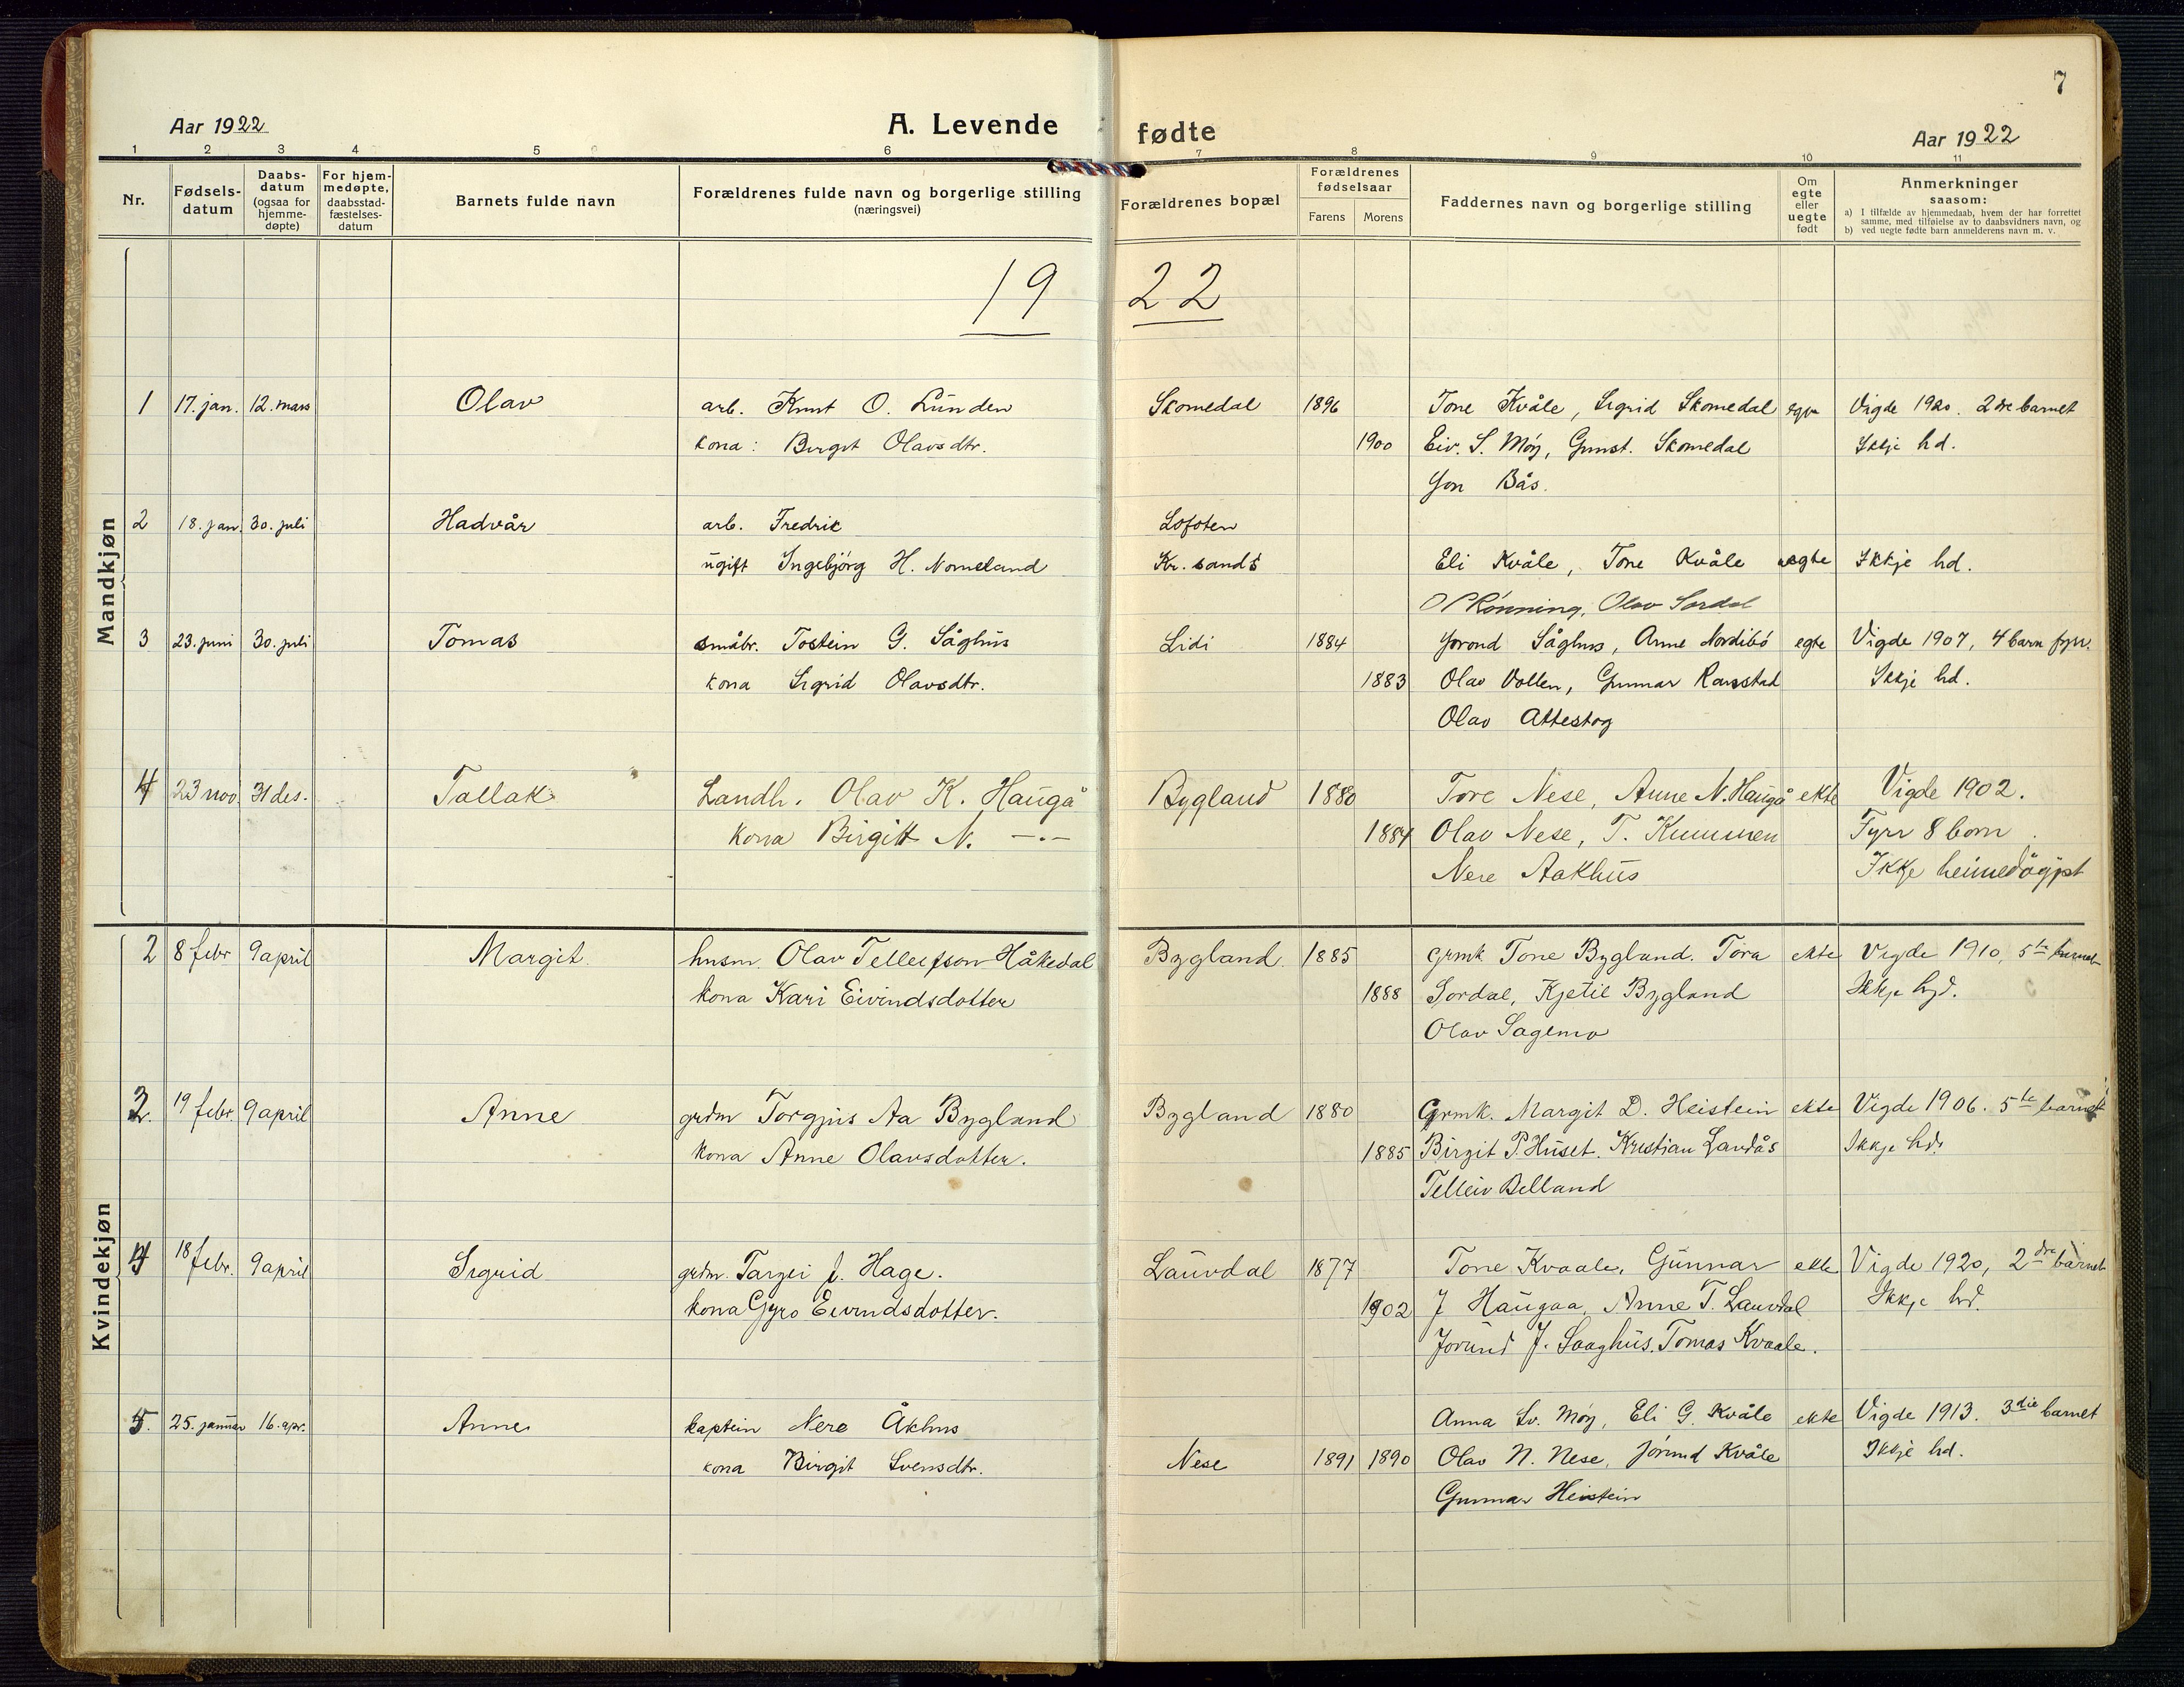 7
Aar 1922 A. Levende fødte Aar 1922
1 2 3 4 5 6 7 8 9 10 11
Nr. Fødselsdatum Daabsdatum (ogsaa for hjemmedøpte) For hjemmedøpte, daabsstadfæstelsesdatum Barnets fulde navn Forældrenes fulde navn og borgerlige stilling (næringsvei) Forældrenes bopæl Forældrenes fødselsaar Farens Morens Faddernes navn og borgerlige stilling Om egte eller uegte født Anmerkninger saasom:
a) I tilfælde av hjemmedaab, hvem der har forrettet samme, med tilføielse av to daabsvidners navn, og
b) ved uegte fødte barn anmelderens navn m. v.
19 22
Mandkjøn
1 17. jan. 12. mars Olav arb. Knut O. Lunden Skomedal 1896 Tone Kvåle, Sigrid Skomedal Vigde 1920. 2dre barnet
kona: Birgit Olavsdtr. 1900 Eiv. S. Møy, Gunst. Skomedal Ikkje hd.
Jon Bås.
2 18. jan. 30. juli Hadvår arb. Fredrik Lofoten
ugift Ingebjörg H. Nomeland Kr. sands Eli Kvåle, Tone Kvåle uegte Ikkje hd.
O Rönning, Olav Sordal
3 23. juni 30. juli Tomas småbr. Tostein G. Såghus Lidi 1884 Jorond Såghus, Anne Nordibö egte Vigde 1907, 4 barn fyrr.
kona Sigrid Olavsdtr. 1883 Olav Vollen, Gunnar Ravsstad Ikkje hd.
Olav Attestog
4 23 nov. 31 des. Tallak Landh. Olav K. Haugå Bygland 1880 Tore Nese, Anne N. Haugå ekte Vigde 1902.
kona Birgitt N. —"— 1884 Olav Nese, T. Kummen Fyrr 8 born.
Nere Aakhus Ikkje heimedöypt
Kvindekjøn
2 8 febr 9 april Margit husm. Olav Tellefson Håkedal Bygland. 1885 grmk Tone Bygland. Tora ekte Vigde 1910, 5te barnet
kona Kari Eivindsdotter 1888 Sordal, Kjetil Bygland Ikkje hjd.
Olav Sagemo
3. 19 febr. 9 april Anne grdm Torgjus Aa Bygland Bygland 1880 Grmk. Margit D. Heistein ekte Vigde 1906. 5te barnet
kona Anne Olavsdotter. 1885 Birgit P. Huset. Kristian Landås Ikkje hd.
Telleiv Belland
4 18 febr. 9 april Sigrid grdm. Targei J. Hage. Lauvdal 1877 Tone Kvaale, Gunnar ekte Vigde 1920, 2dre barnet
kona Gyro Eivindsdotter. 1902 J Haugaa, Anne T. Lauvdal Ikkje hd.
Jorund J. Saaghus. Tomas Kvaale.
5. 25. januar 16. apr. Anne kaptein Nere Åkhus Anna Sv. Möy, Eli G. Kvåle ekte Vigde 1913. 3die barnet
kona Birgit Svensdtr. Nese 1891 1890 Olav N. Nese, Jörund Kvåle Ikkje hd.
Gunnar Heistein